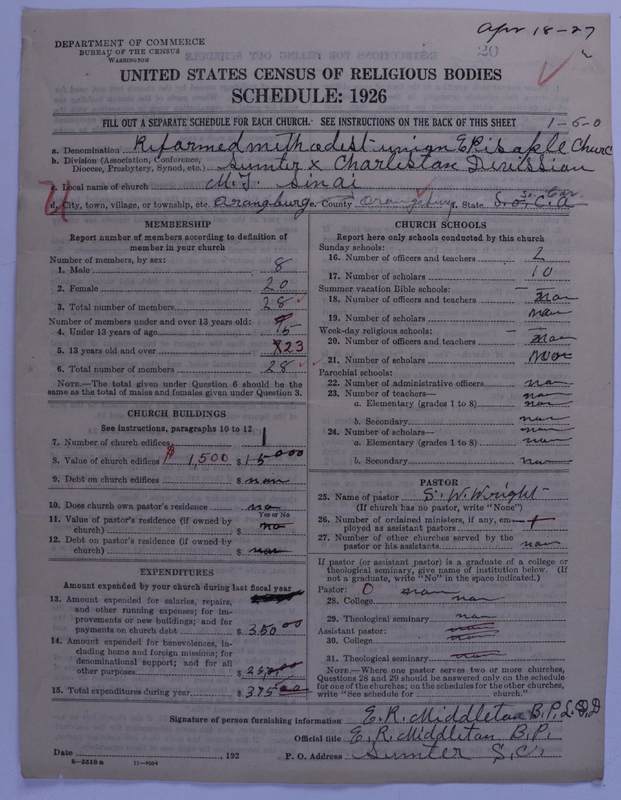 Apr 18-27
DEPARTMENT OF COMMERCE
BUREAU OF THE CENSUS
WASHINGTON
20
UNITED STATES CENSUS OF RELIGIOUS BODIES
SCHEDULE: 1926
FILL OUT A SEPARATE SCHEDULE FOR EACH CHURCH. SEE INSTRUCTIONS ON THE BACK OF THIS SHEET
1-5-0
a. Denomination Reformed methodest union EPisaple Church
b. Division (Association, Conference, Diocese, Presbytery, Synod, etc.) Sumter x Charlestan Divission
c. Local name of church M.T. Sinai
d. City, town, village, or township, etc. Orangburge County Orangeburg f. State So. Car S.o. C.a
MEMBERSHIP
Report number of members according to definition of
member in your church
Number of members, by sex:
1. Male 8
2. Female 20
3. Total number of members 28
Number of members under and over 13 years old:
4. Under 13 years of age 5
5. 13 years old and over 23
6. Total number of members 28
NOTE.—The total given under Question 6 should be the
same as the total of males and females given under Question 3.
CHURCH BUILDINGS
See instructions, paragraphs 10 to 12
7. Number of church edifices 1
8. Value of church edifices $ 1,500 $ 15000
9. Debt on church edifices $ nan
10. Does church own pastor's residence no
Yes or No
11. Value of pastor's residence (if owned by
church) $ no
12. Debt on pastor's residence (if owned by
church) $ nan
EXPENDITURES
Amount expended by your church during last fiscal year
13. Amount expended for salaries, repairs,
and other running expenses; for im-
provements or new buildings; and for
payments on church debt $ 350 00
14. Amount expended for benevolences, in-
cluding home and foreign missions; for
denominational support; and for all
other purposes $
15. Total expenditures during year $ 375 00
CHURCH SCHOOLS
Report here only schools conducted by this church
Sunday schools:
16. Number of officers and teachers 2
17. Number of scholars 10
Summer vacation Bible schools:
18. Number of officers and teachers nan
19. Number of scholars nan
Week-day religious schools:
20. Number of officers and teachers nan
21. Number of scholars noon
Parochial schools:
22. Number of administrative officers nan
23. Number of teachers— nan
a. Elementary (grades 1 to 8) nan
b. Secondary nan
24. Number of scholars— nan
a. Elementary (grades 1 to 8) nan
b. Secondary nan
PASTOR
25. Name of pastor S. W. Wright
(If church has no pastor, write "None")
26. Number of ordained ministers, if any, em-
ployed as assistant pastors
27. Number of other churches served by the
pastor or his assistants nan
If pastor (or assistant pastor) is a graduate of a college or
theological seminary, give name of institution below. (If
not a graduate, write "No" in the space indicated.)
Pastor: 0 nan
28. College nan
29. Theological seminary nan
Assistant pastor: nan
30. College nan
31. Theological seminary nan
NOTE.—Where one pastor serves two or more churches,
Questions 28 and 29 should be answered only on the schedule
for one of the churches; on the schedules for the other churches,
write "See schedule for church."
Signature of person furnishing information E. R. Middletan B.P. L.D.D
Official title E. R. Middletan B.P.
Date , 192 P. O. Address Sumter S.C.
8-5518a 11-9554